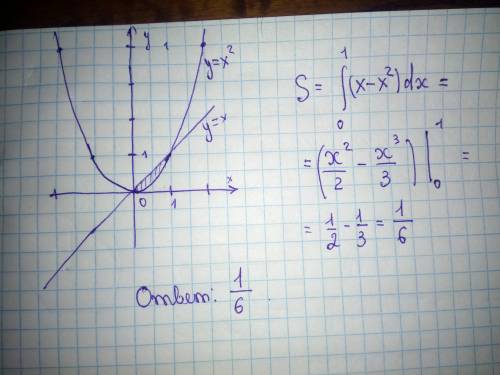 y
1
y=x²
y=x
1
x
0
1
S = ∫₀¹ (x-x²)dx =
= (x²/2 - x³/3) |₀¹ =
= 1/2 - 1/3 = 1/6
Ответ: 1/6.